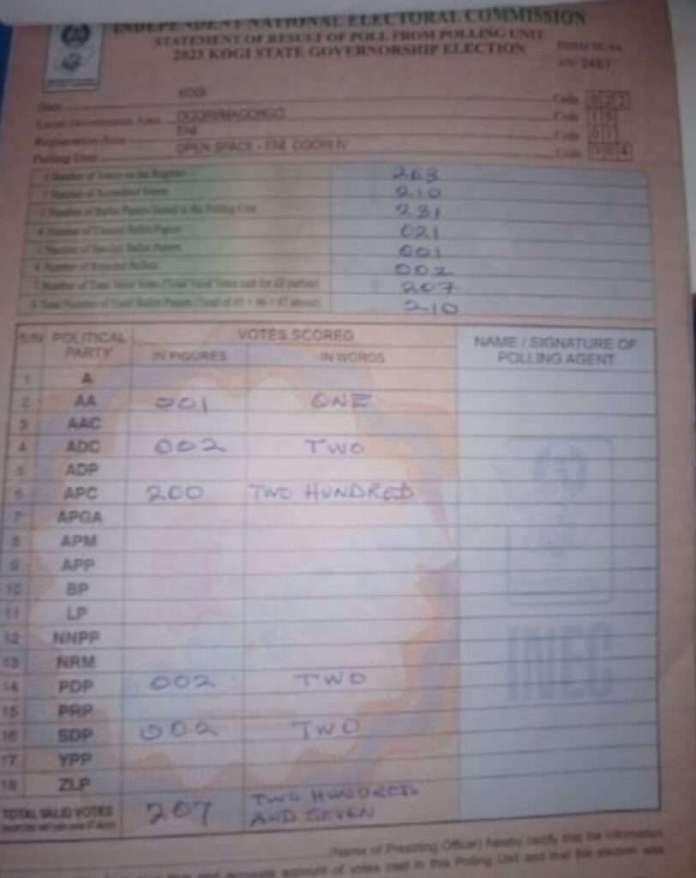 INDEPENDENT NATIONAL ELECTORAL COMMISSION
STATEMENT OF RESULT OF POLL FROM POLLING UNIT
2023 KOGI STATE GOVERNORSHIP ELECTION
KOGI Code
Local Government Area OGORI/MAGONGO Code
Registration Area ENI Code
Polling Unit OPEN SPACE - ENI Code
1 Number of Voters on the Register 263
2 Number of Accredited Voters 210
3 Number of Ballot Papers Issued to the Polling Unit 231
4 Number of Unused Ballot Papers 021
5 Number of Spoiled Ballot Papers 001
6 Number of Rejected Ballots 002
7 Number of Total Valid Votes (Total Valid Votes cast for all parties) 207
8 Total Number of Used Ballot Papers (Total of #5 + #6 + #7 above) 210
S/N POLITICAL PARTY VOTES SCORED NAME / SIGNATURE OF POLLING AGENT
IN FIGURES IN WORDS
1 A
2 AA 001 ONE
3 AAC
4 ADC 002 TWO
5 ADP
6 APC 200 TWO HUNDRED
7 APGA
8 APM
9 APP
10 BP
11 LP
12 NNPP
13 NRM
14 PDP 002 TWO
15 PRP
16 SDP 002 TWO
17 YPP
18 ZLP
TOTAL VALID VOTES 207 TWO HUNDRED AND SEVEN
INEC
(Name of Presiding Officer) hereby certify that the information
accurate account of votes cast in this Polling Unit and that the election was